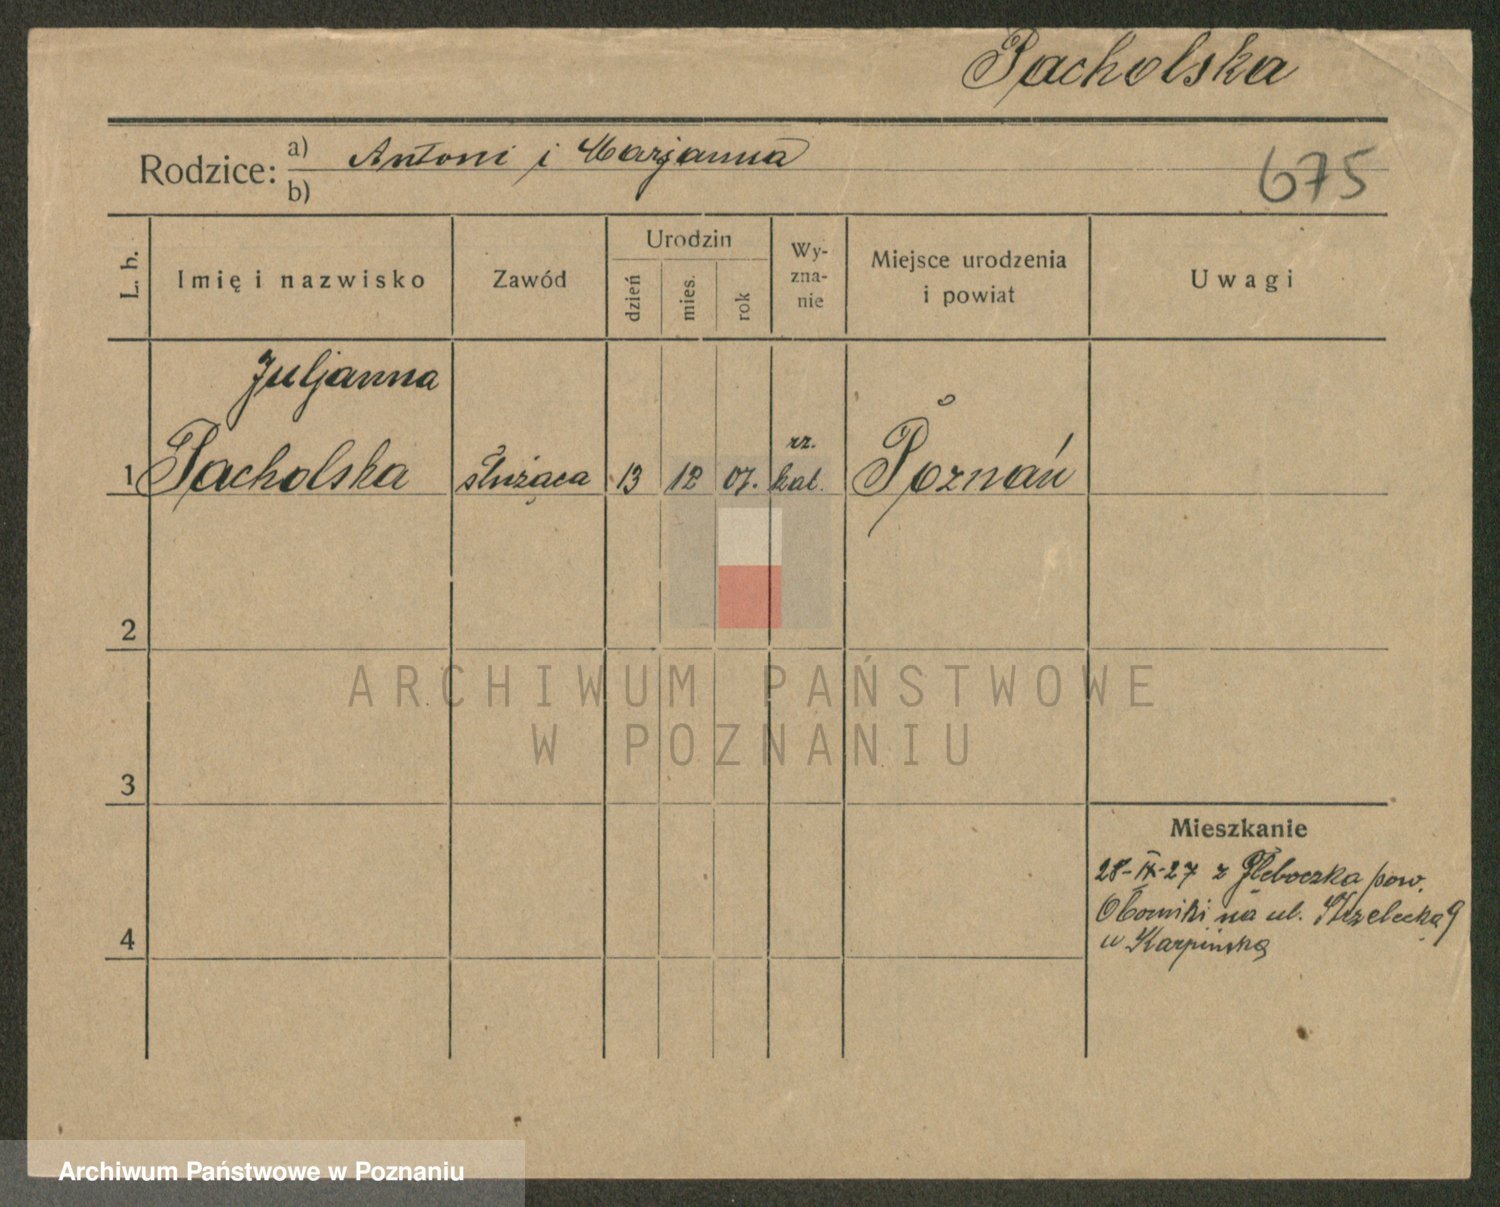 Pacholska
Rodzice: a) Antoni i Marjanna
b)
675
L. h.
Imię i nazwisko
Zawód
Urodzin
dzień
mies.
rok
Wy-
zna-
nie
Miejsce urodzenia
i powiat
Uwagi
Juljanna
rz.
1 Pacholska służąca 13 12 07. kat. Poznań
2
3
4
Mieszkanie
28-IX-27 z Głęboczka pow.
Oborniki na ul. Strzelecką 9
u Karpińską
ARCHIWUM PAŃSTWOWE
W POZNANIU
Archiwum Państwowe w Poznaniu